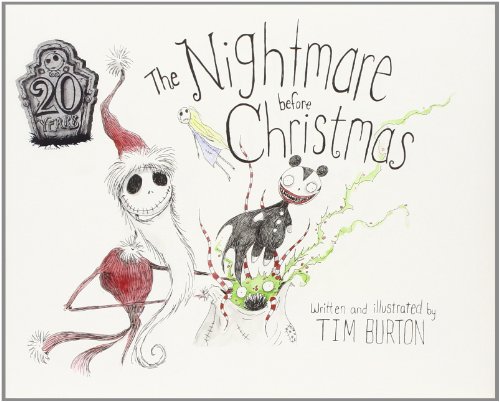 20
YEARS
The Nightmare
before
Christmas
Written and illustrated by
TIM BURTON